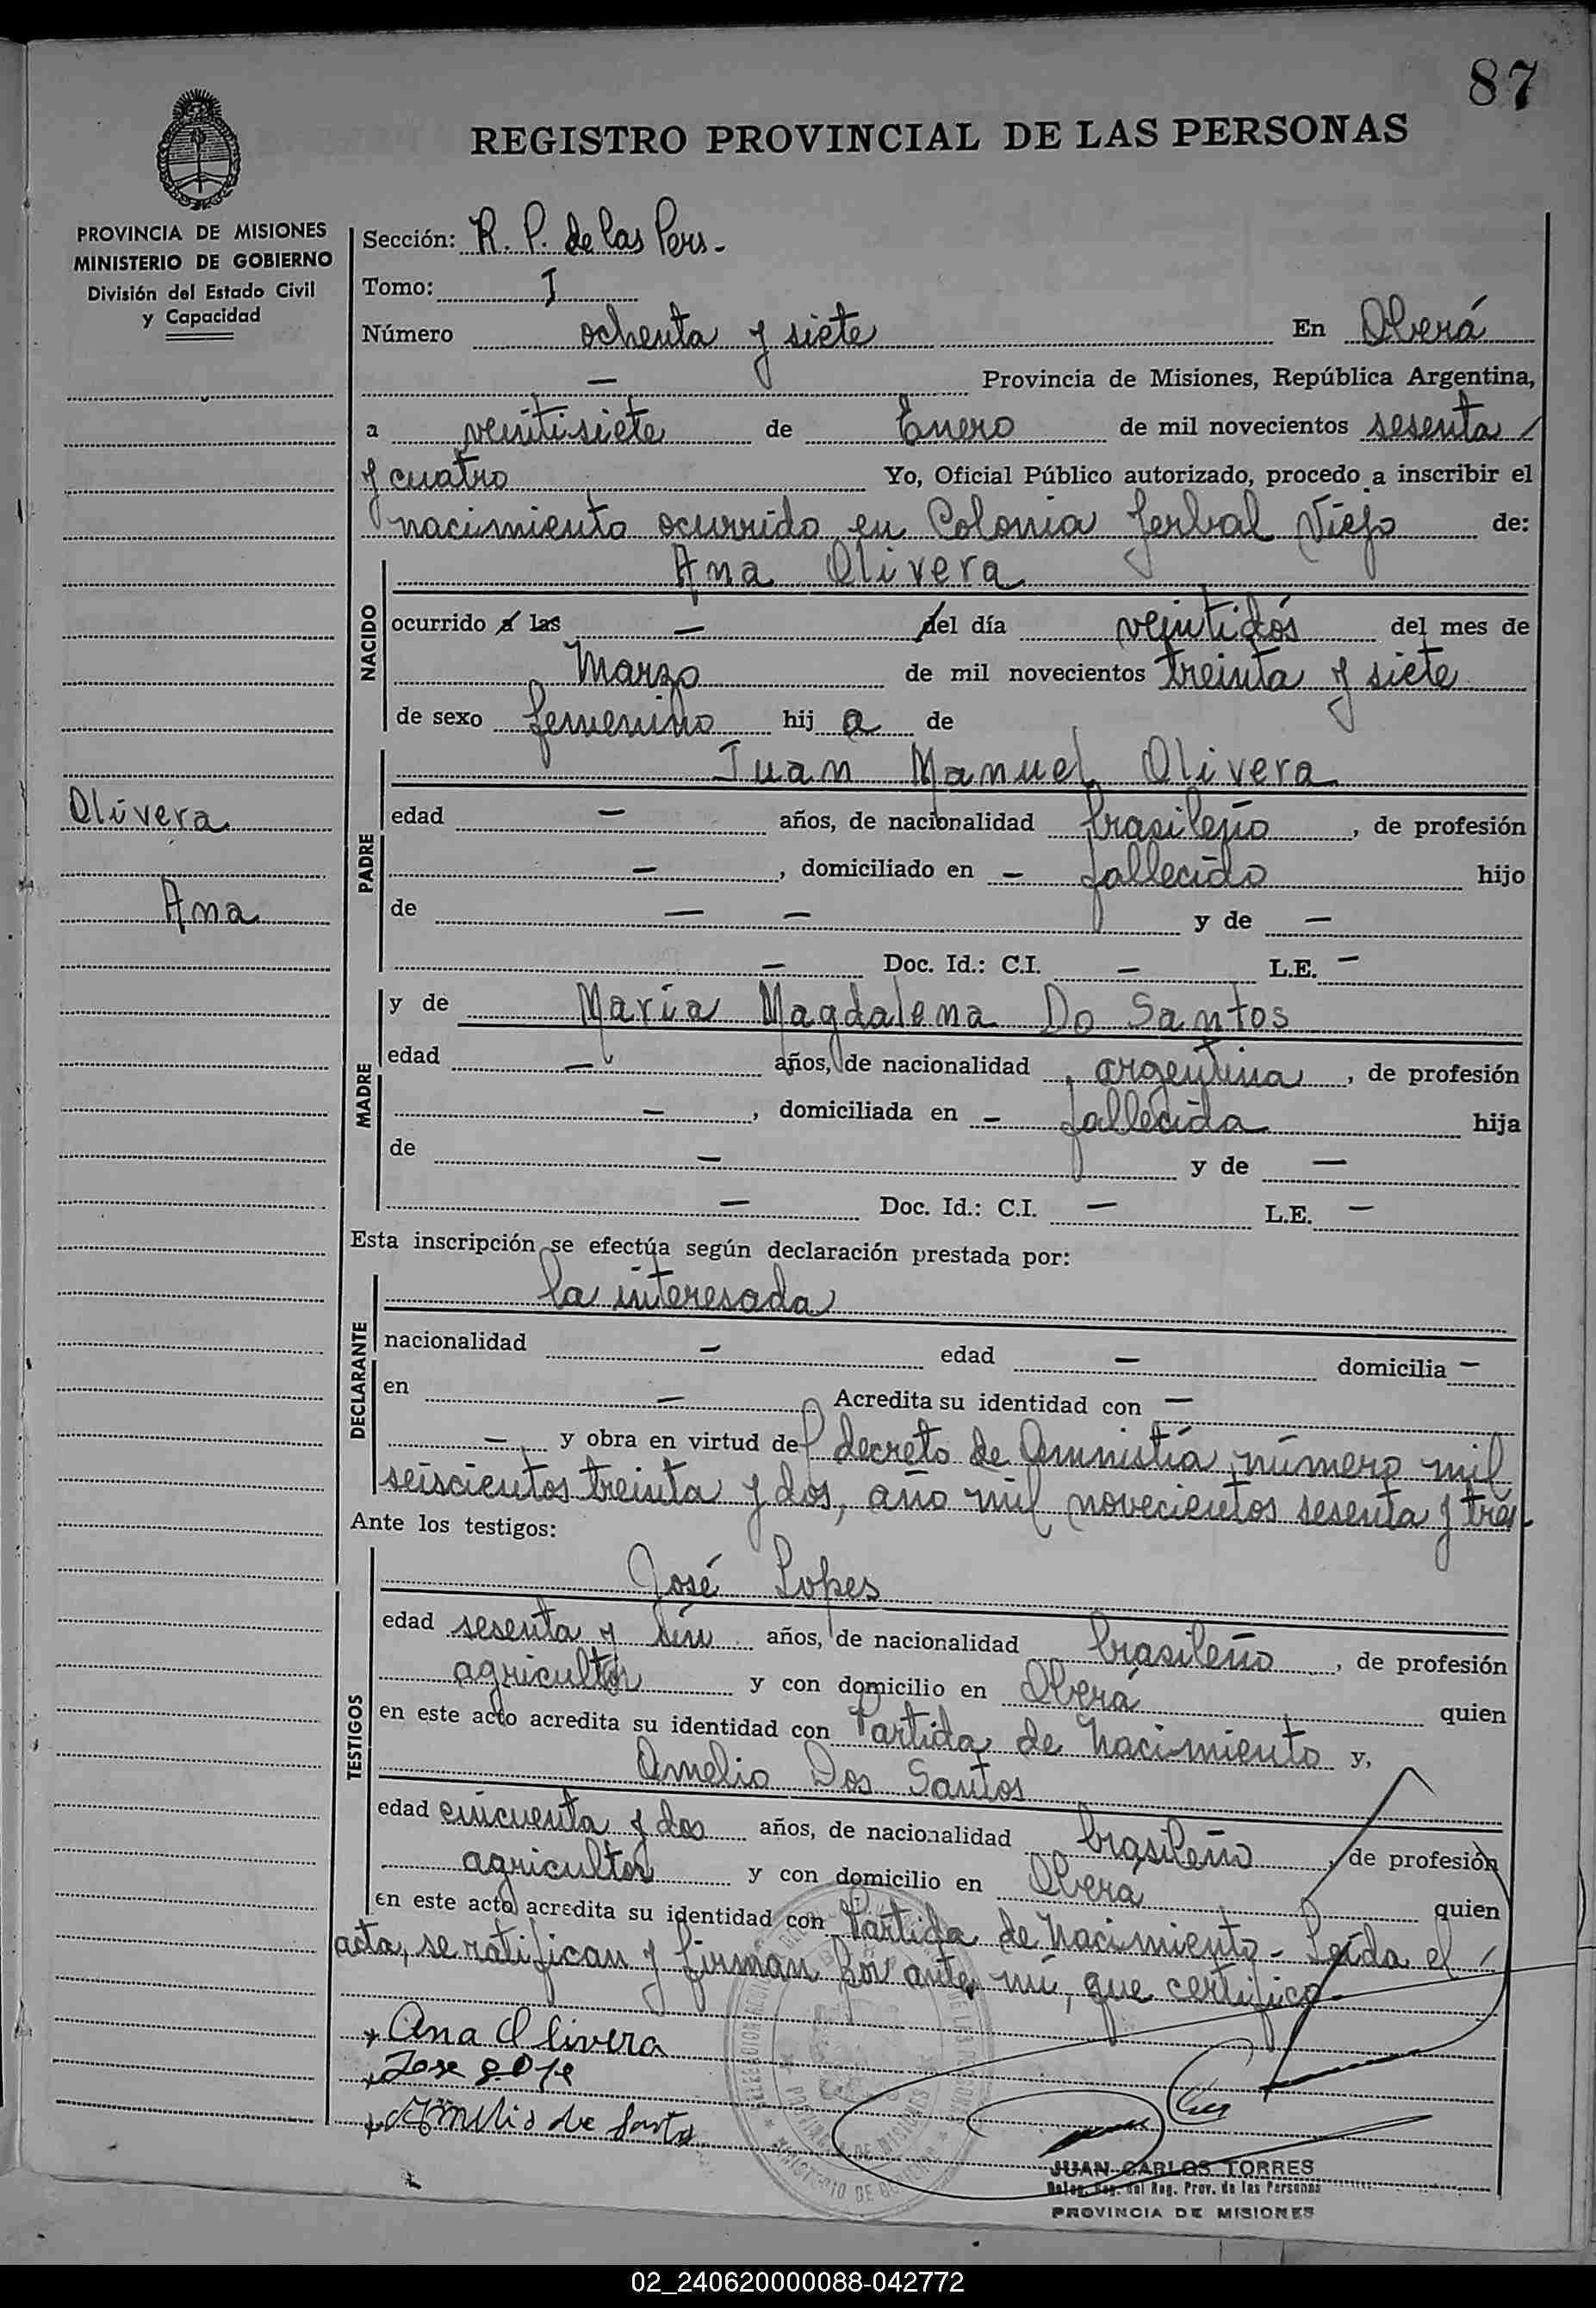 87
REGISTRO PROVINCIAL DE LAS PERSONAS
PROVINCIA DE MISIONES
MINISTERIO DE GOBIERNO
División del Estado Civil
y Capacidad
Sección: R. P. de las Pers.-
Tomo: I
Número ochenta y siete En Oberá
— Provincia de Misiones, República Argentina,
a veintisiete de Enero de mil novecientos sesenta /
y cuatro Yo, Oficial Público autorizado, procedo a inscribir el
nacimiento ocurrido en Colonia Yerbal Viejo de:
NACIDO
Ana Olivera
ocurrido a las — del día veintidós del mes de
Marzo de mil novecientos treinta y siete
de sexo femenino hij a de
Olivera
Ana
PADRE
Juan Manuel Olivera
edad — años, de nacionalidad brasileño, de profesión
—, domiciliado en — fallecido hijo
de — — y de —
— Doc. Id.: C.I. — L.E. —
MADRE
y de María Magdalena Do Santos
edad — años, de nacionalidad argentina, de profesión
—, domiciliada en — fallecida hija
de — y de —
— Doc. Id.: C.I. — L.E. —
Esta inscripción se efectúa según declaración prestada por:
DECLARANTE
la interesada
nacionalidad — edad — domicilia —
en — Acredita su identidad con —
— y obra en virtud del decreto de Amnistía número mil
seiscientos treinta y dos, año mil novecientos sesenta y tres
Ante los testigos:
TESTIGOS
José Lopes
edad sesenta y años, de nacionalidad brasileño, de profesión
agricultor y con domicilio en Oberá quien
en este acto acredita su identidad con Partida de Nacimiento y,
Amelio Dos Santos
edad cincuenta y dos años, de nacionalidad brasileño, de profesión
agricultor y con domicilio en Oberá quien
en este acto acredita su identidad con Partida de Nacimiento - Leída el /
acta, se ratifican y firman Por ante mí, que certifico.-
Ana Olivera
Jose
de
PROVINCIA DE MISIONES
MINISTERIO DE GOBIERNO
JUAN CARLOS TORRES
Deleg. Reg. del Reg. Prov. de las Personas
PROVINCIA DE MISIONES
02_240620000088-042772